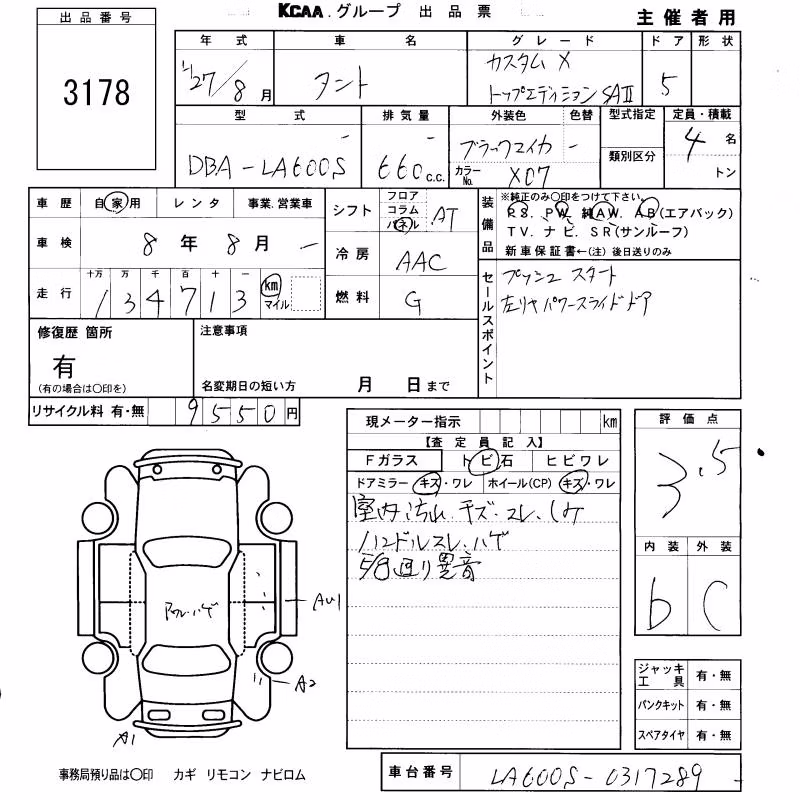 KCAA.グループ 出品票
主催者用
出品番号
3178
年式 車名 グレード ドア 形状
H27/8月 タント カスタム X トップエディション SAⅡ 5
型式 排気量 外装色 色替 型式指定 定員・積載
DBA-LA600S 660c.c. ブラックマイカ - 4名
カラーNo. X07 類別区分 トン
車歴 自家用 レンタ 事業.営業車
シフト フロア コラム パネル AT
装備品 ※純正のみ〇印をつけて下さい。
PS. PW. 純AW. AB(エアバック)
TV. ナビ. SR(サンルーフ)
新車保証書←(注) 後日送りのみ
車検 8年8月 -
冷房 AAC
走行 十万 万 千 百 十 一
134713 km マイル
燃料 G
セールスポイント
プッシュスタート
左リヤパワースライドドア
修復歴 箇所
有
(有の場合は〇印を)
注意事項
名変期日の短い方 月 日まで
リサイクル料 有・無 9550円
現メーター指示 km
【査定員記入】
Fガラス トビ石 ヒビワレ
ドアミラー キズ・ワレ ホイール(CP) キズ・ワレ
室内汚れ.キズ・スレ.シミ
ハンドルスレ・ハゲ
5/8回り異音
評価点
3.5
内装 外装
b C
AU1
A2
A1
ジャッキ工具 有・無
パンクキット 有・無
スペアタイヤ 有・無
事務局預り品は〇印 カギ リモコン ナビロム
車台番号 LA600S-0317289